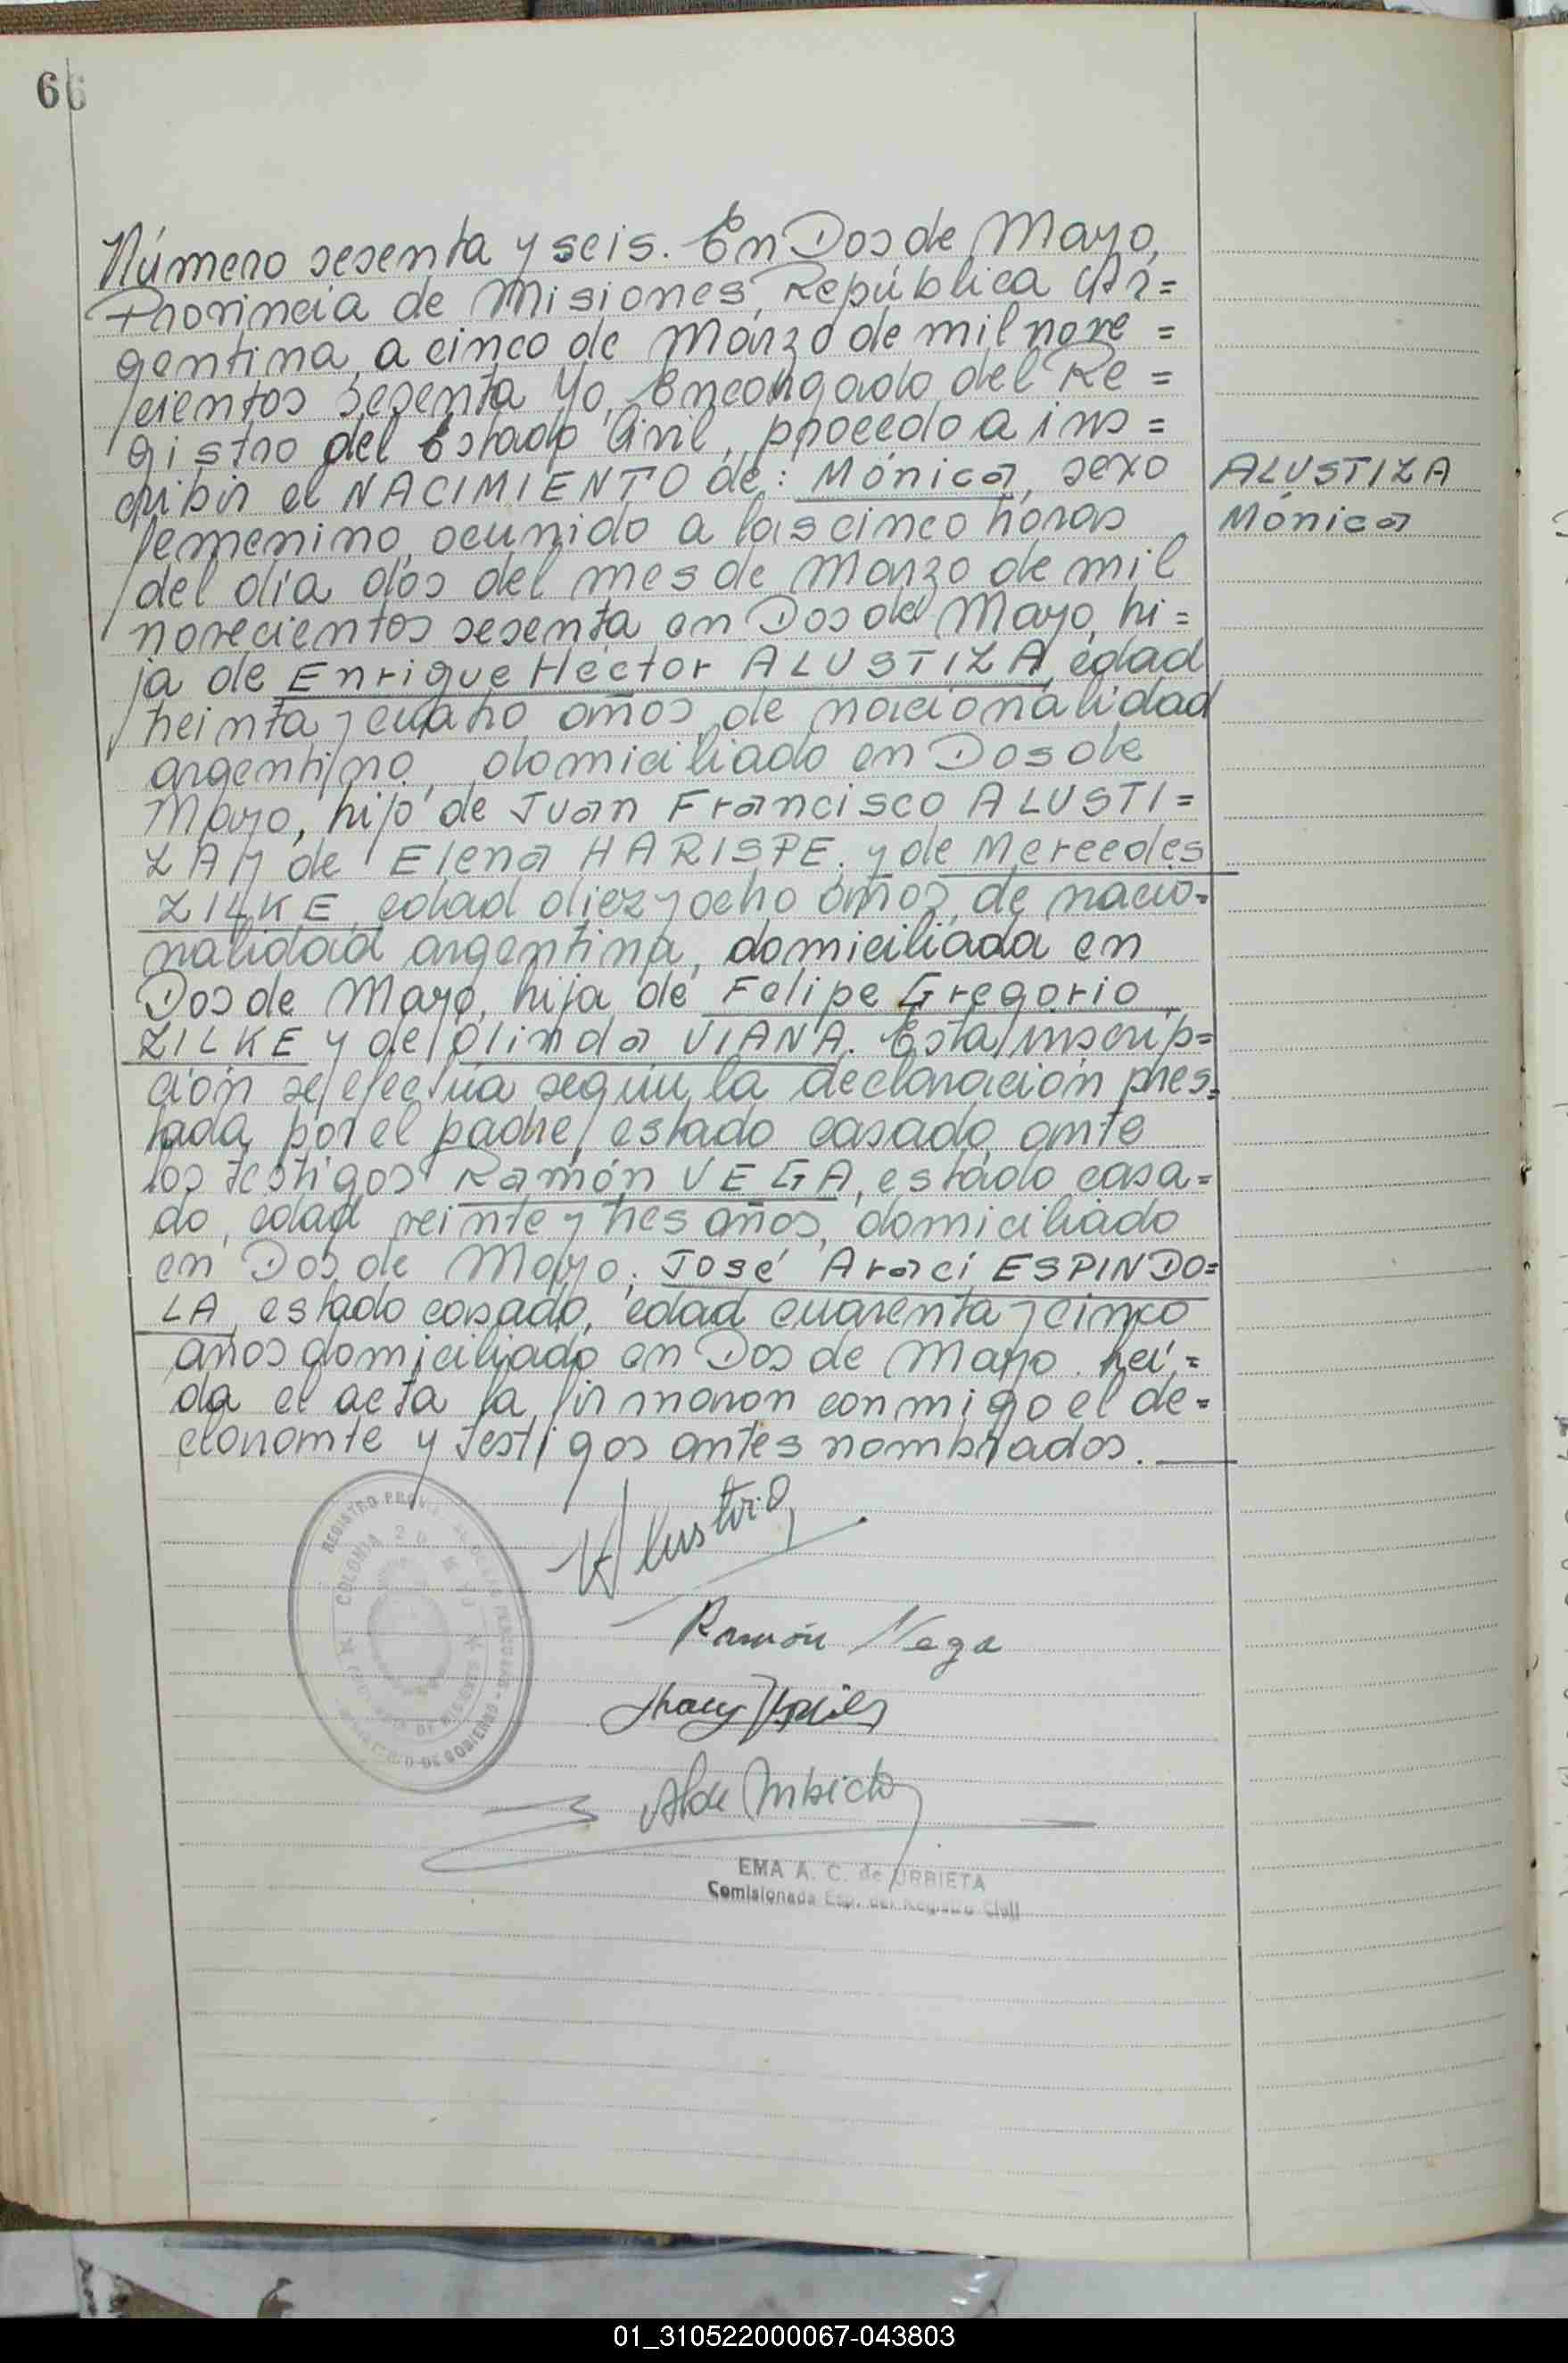 66
Número sesenta y seis. En Dos de Mayo,
Provincia de Misiones, República Ar=
gentina, a cinco de Marzo de mil nove=
cientos sesenta Yo, Encargado del Re=
gistro del Estado Civil, procedo a ins=
cribir el NACIMIENTO de: Mónica, sexo
ALUSTIZA
femenino, ocurrido a las cinco horas
Mónica
del día dos del mes de Marzo de mil
novecientos sesenta en Dos de Mayo, hi=
ja de Enrique Héctor ALUSTIZA, edad
treinta y cuatro años, de nacionalidad
argentino, domiciliado en Dos de
Mayo, hijo de Juan Francisco ALUSTI=
ZA y de Elena HARISPE. y de Mercedes
ZILKE, edad diez y ocho años, de nacio=
nalidad argentina, domiciliada en
Dos de Mayo, hija de Felipe Gregorio
ZILKE y de Olinda VIANA. Esta inscrip=
ción se efectúa según la declaración pres=
tada por el padre, estado casado, ante
los testigos Ramón VEGA, estado casa=
do, edad veinte y tres años, domiciliado
en Dos de Mayo; José Araci ESPINDO=
LA, estado casado, edad cuarenta y cinco
años domiciliado en Dos de Mayo. Leí=
da el acta la firmaron conmigo el de=
clarante y testigos antes nombrados.
Ramón Vega
EMA A. C. de URBIETA
Comisionada Esp. del Registro Civil
01_310522000067-043803